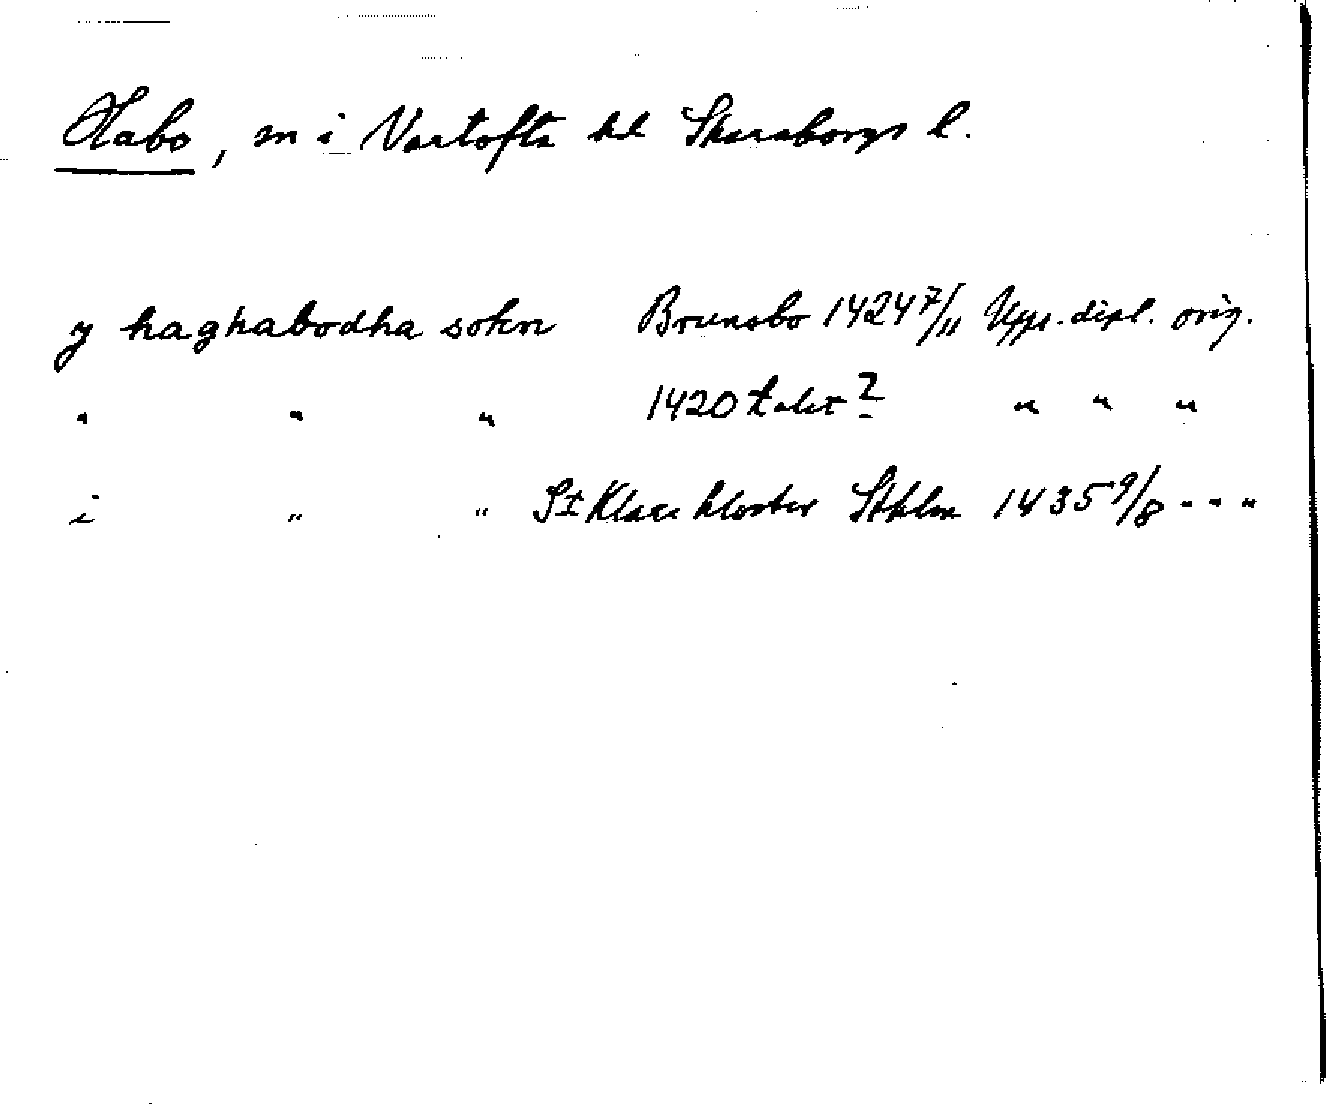 Habo, sn i Vartofta hd Skaraborgs l.
y haghabodha sokn Brunsbo 1424 7/11 Upps. dipl. orig.
" " " 1420 talet? " " "
i " " St Klara kloster Sthlm 1435 9/8 " " "